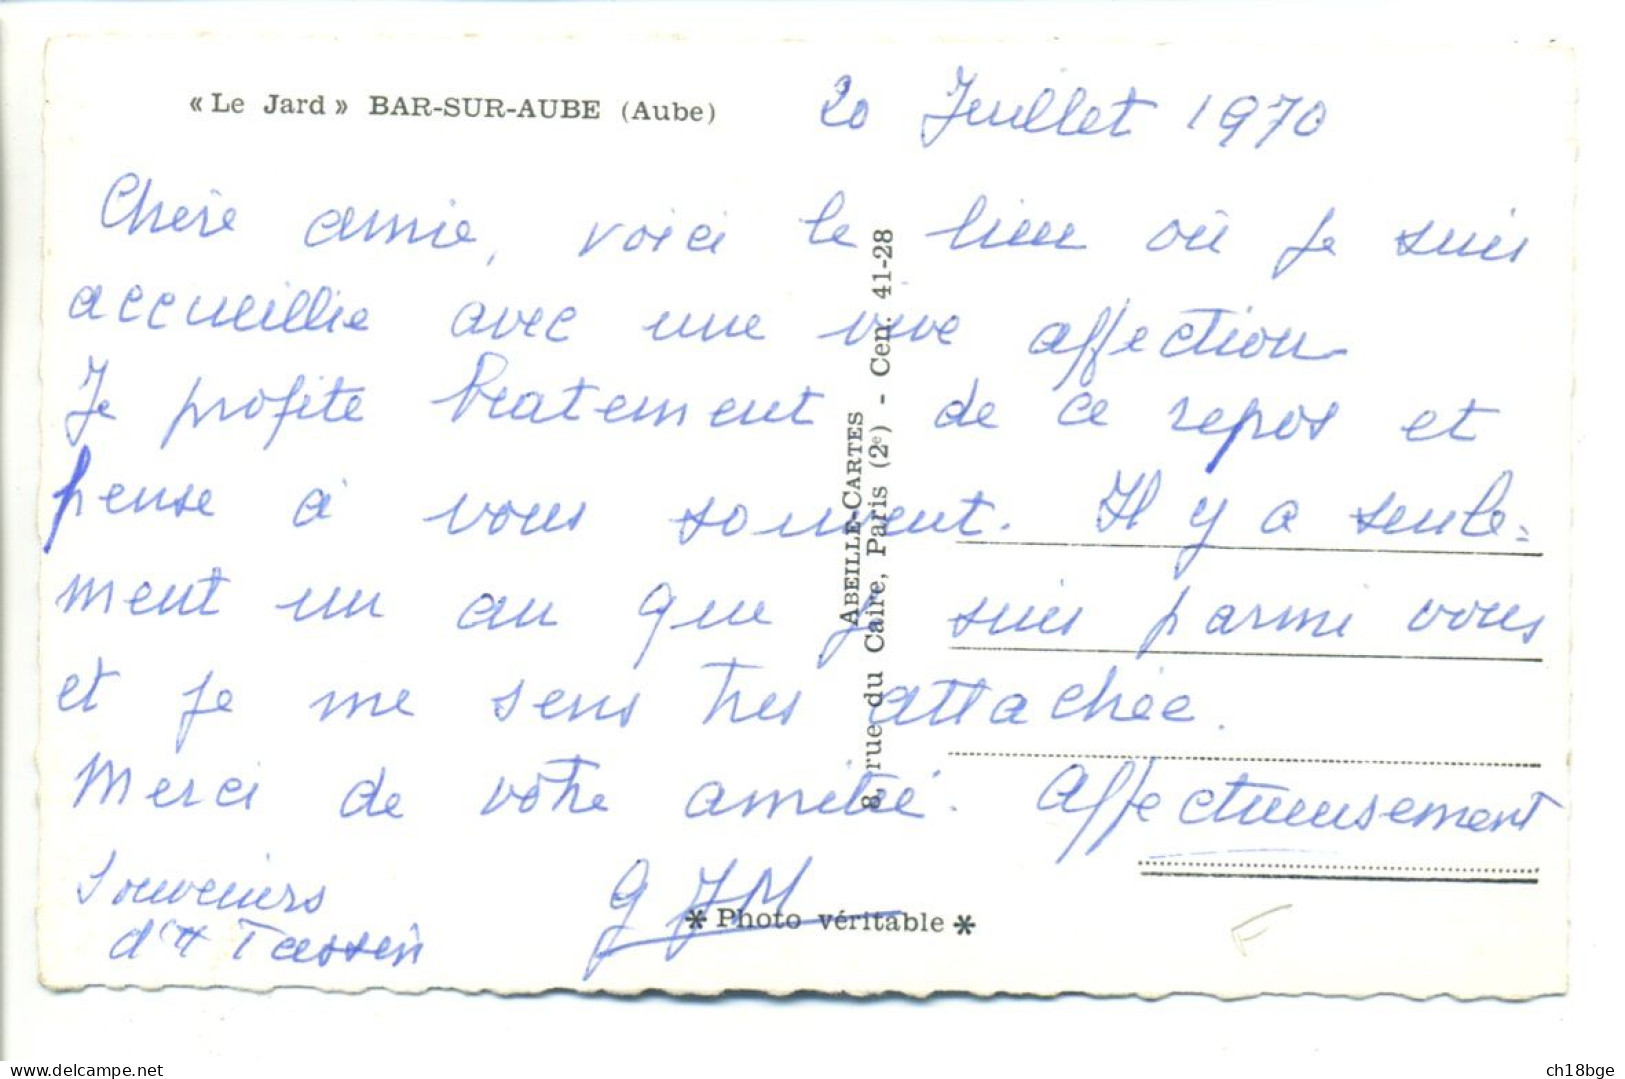 « Le Jard » BAR-SUR-AUBE (Aube)
20 Juillet 1970
Chère amie, voici le lieu où je suis
accueillie avec une vive affection
Je profite béatement de ce repos et
pense à vous souvent. Il y a seule=
ment un an que je suis parmi vous
et je me sens très attachée.
Merci de votre amitié. Affectueusement
Souvenirs
d'H Tassin
G JM
ABEILLE-CARTES
8, rue du Caire, Paris (2e) - Cen. 41-28
* Photo véritable *
F
www.delcampe.net
ch18bge